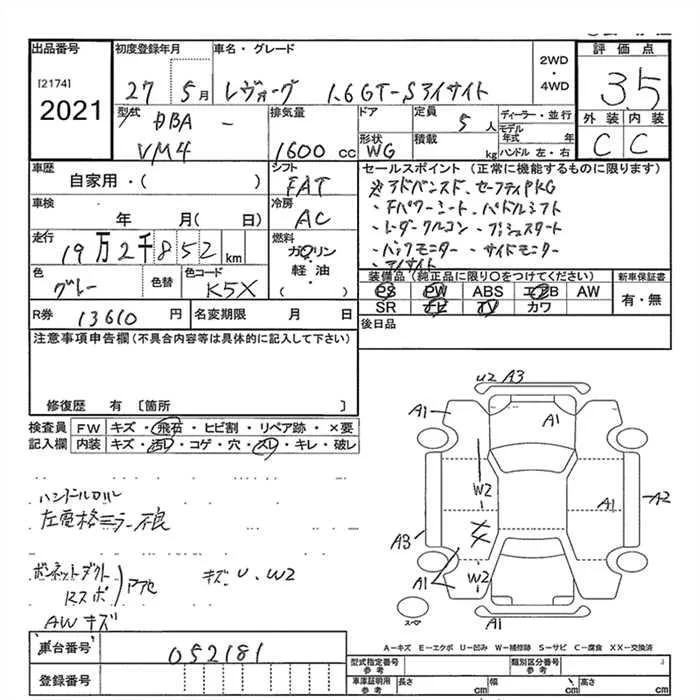 出品番号 初度登録年月 車名・グレード 2WD・4WD 評価点
[2174] 2021 27 5月 レヴォーグ 1.6GT-Sアイサイト 3.5
型式 排気量 ドア 定員 ディーラー・並行 外装 内装
DBA - 5人 モデル年式 年 C C
VM4 1600cc 形状 WG 積載 kg ハンドル 左・右
車歴 シフト セールスポイント (正常に機能するものに限ります)
自家用・( ) FAT アドバンスド、セーフティPKG
車検 冷房 ・Fパワーシート・パドルシフト
年 月( 日) AC ・レーダークルコン・プッシュスタート
走行 燃料 ・バックモニター・サイドモニター
19万2千852km ガソリン・軽油・( ) ・アイサイト
色 色替 色コード 装備品(純正品に限り〇をつけてください) 新車保証書
グレー K5X PS PW ABS エアB AW 有・無
SR ナビ TV カワ
R券 13610円 名変期限 月 日 後日品
注意事項申告欄(不具合内容等は具体的に記入して下さい)
修復歴 有 [箇所 ]
検査員 FW キズ・飛石・ヒビ割・リペア跡・×要
記入欄 内装 キズ・汚レ・コゲ・穴・スレ・キレ・破レ
U2 A3
A1 A1
W2 A1 A2
A3
A1 W2
A1
スペア
左電格ミラー不良
ボンネットダクト
キズ、U、W2
AWキズ
A－キズ E－エクボ U－凹み W－補修跡 S－サビ C－腐食 XX－交換済
車台番号 052181
登録番号
型式指定番号 参考 類別区分番号 参考
車庫証明用 参考 長さ cm 幅 cm 高さ cm